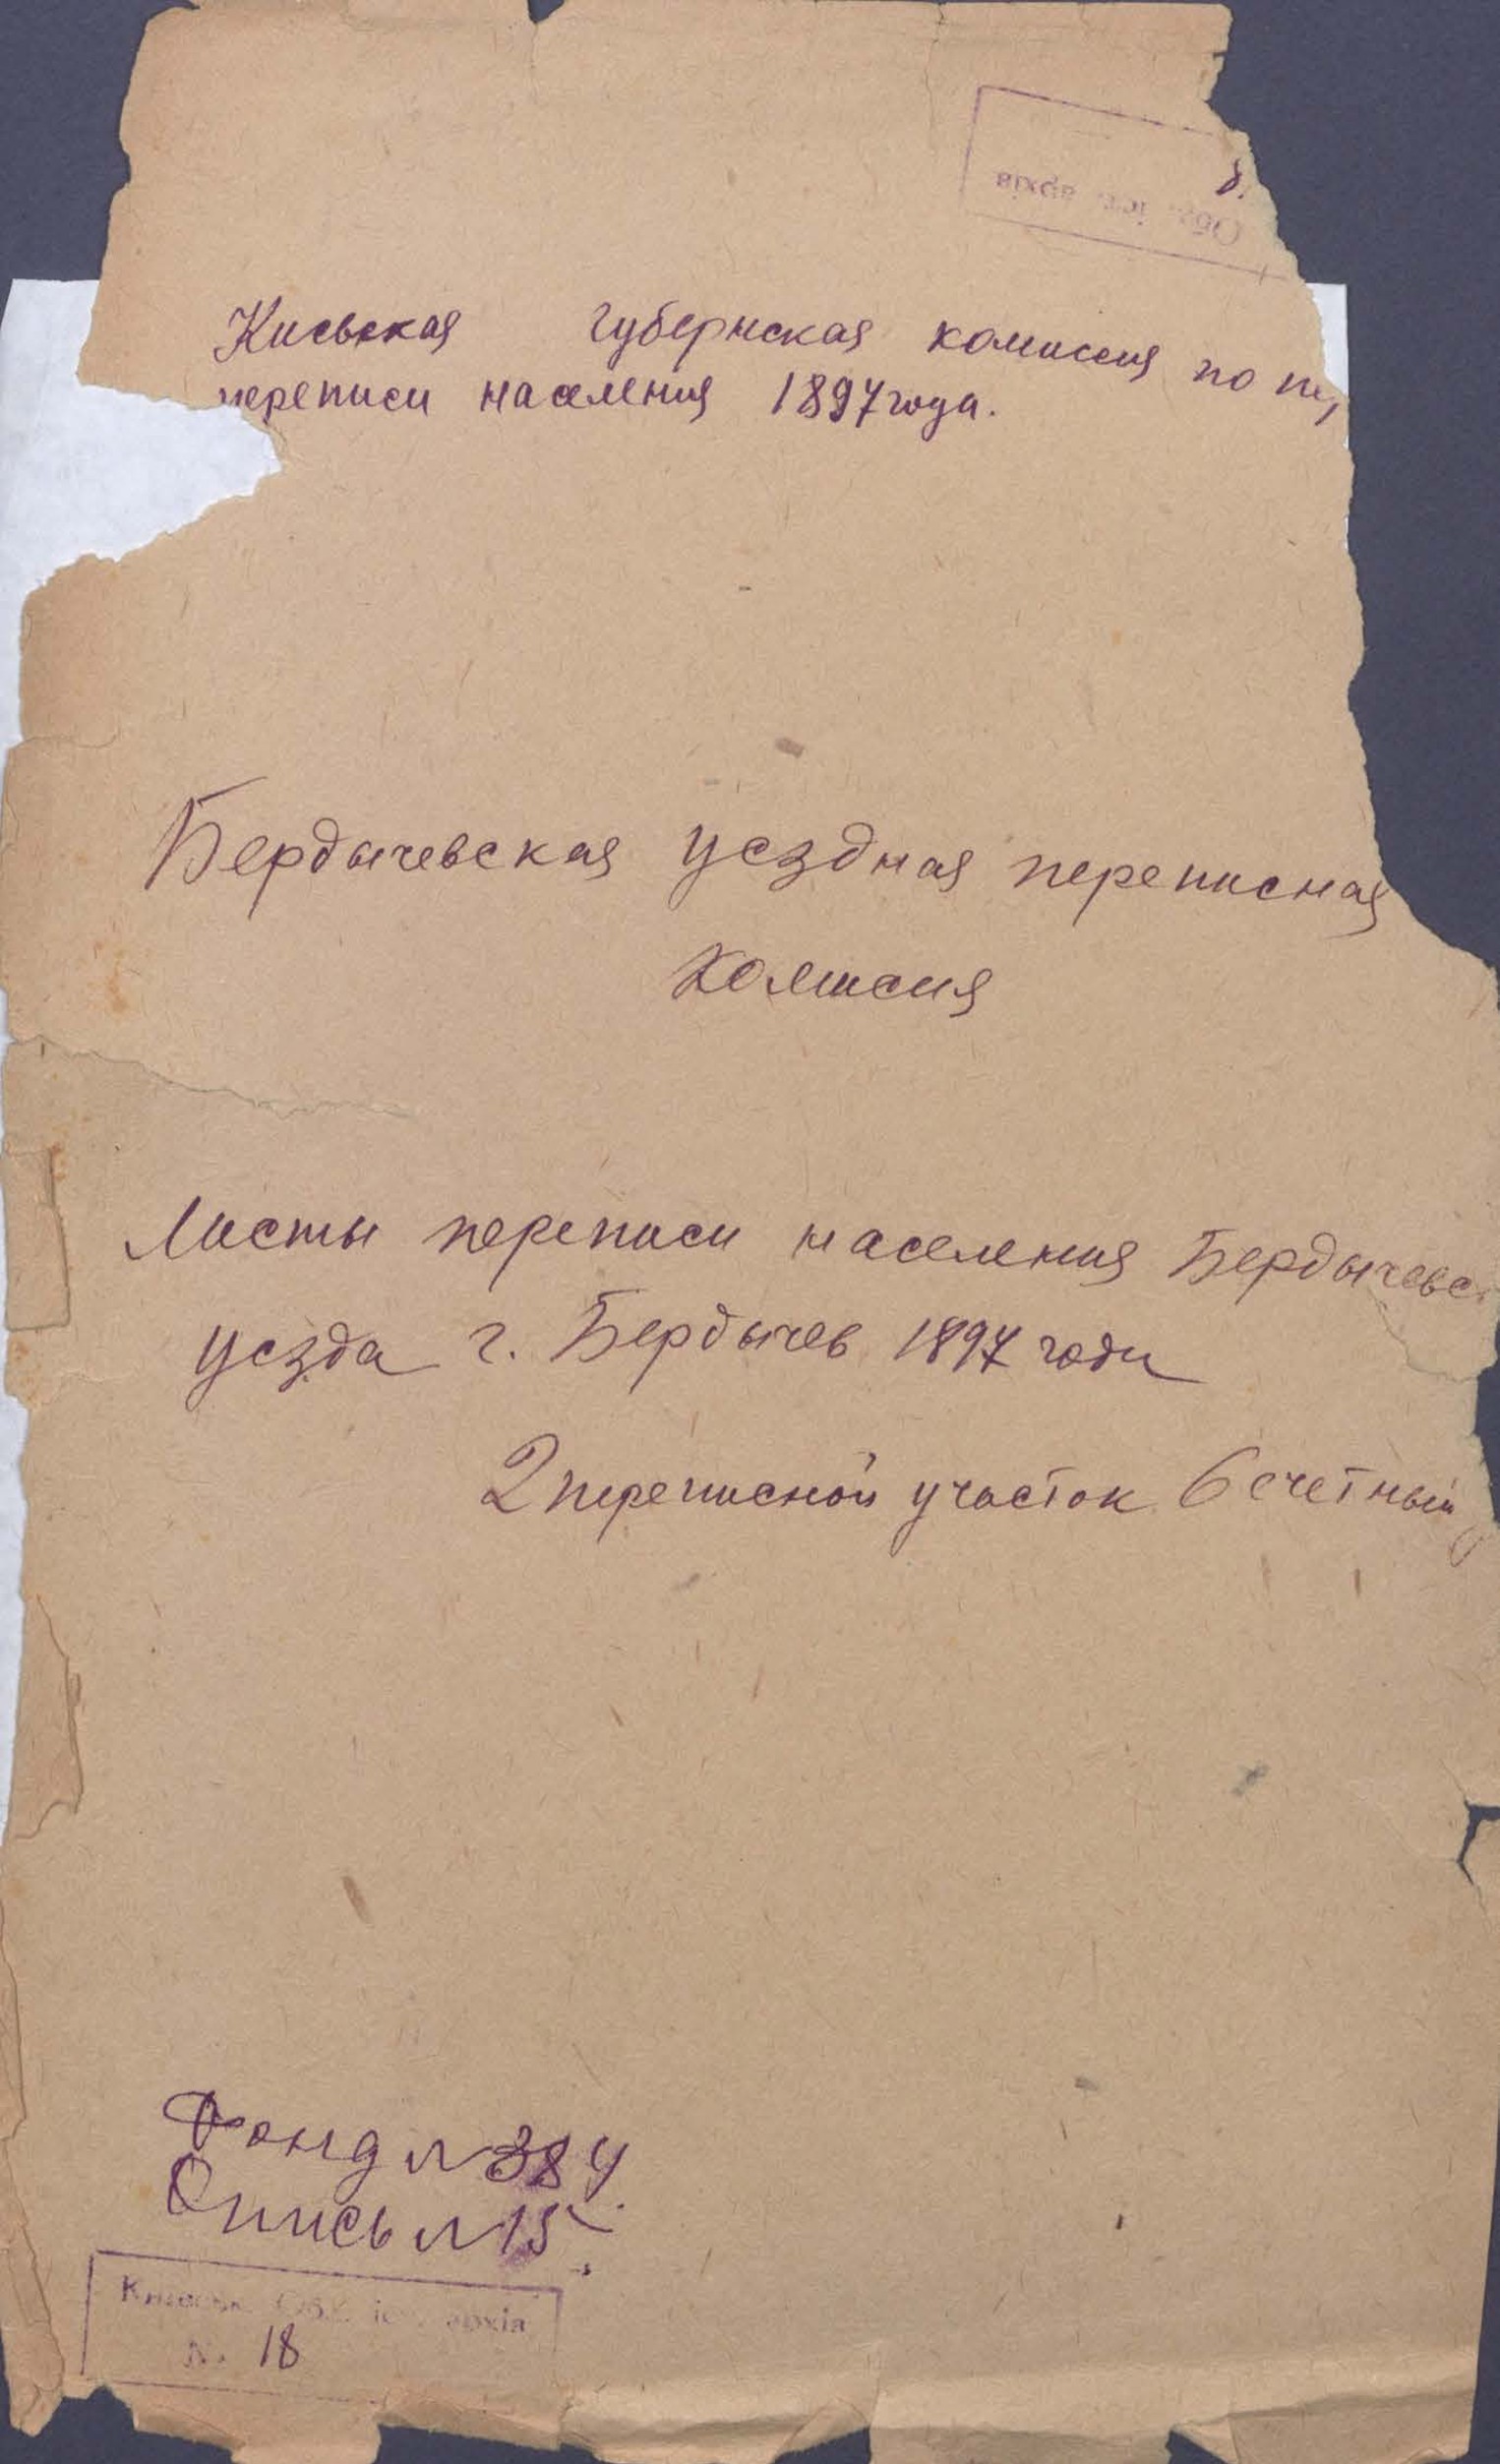 Обл. іст. архів
Киевская губернская комиссия по пер
переписи населения 1897 года.
Бердычевская уездная переписная
комиссия
Листы переписи населения Бердычевс
уезда г. Бердычев 1897 года
2 переписной участок 6 счетный
Фонд № 384
Опись № 15
Київськ. Обл. іст. архів
№ 18